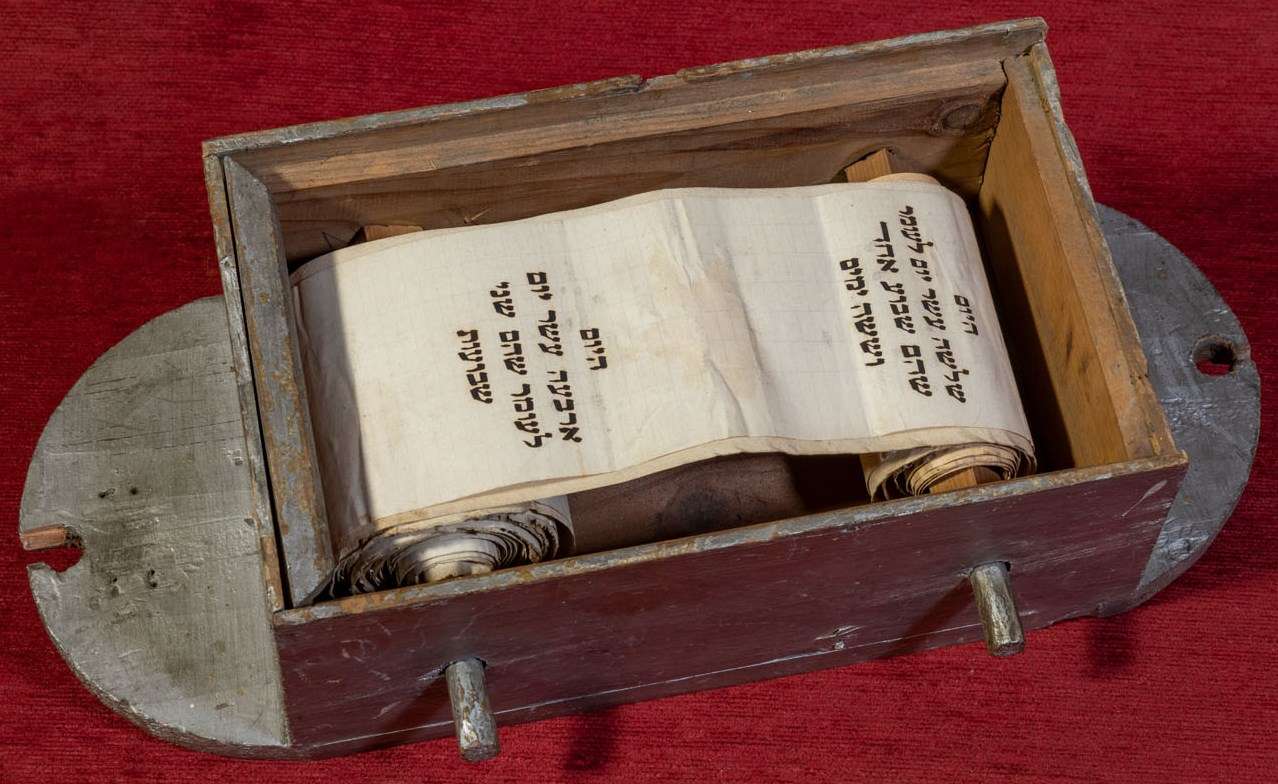 היום
שלשה עשר יום לעומר
שהם שבוע אחד
וששה ימים
היום
ארבעה עשר יום
לעומר שהם שני
שבועות